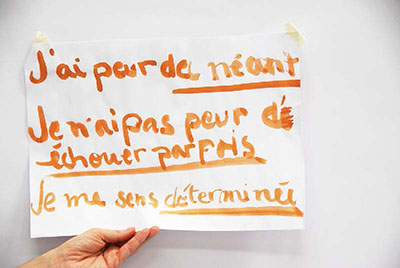 J'ai peur du néant
Je n'ai pas peur dé
échouer parfois
Je me sens déterminée